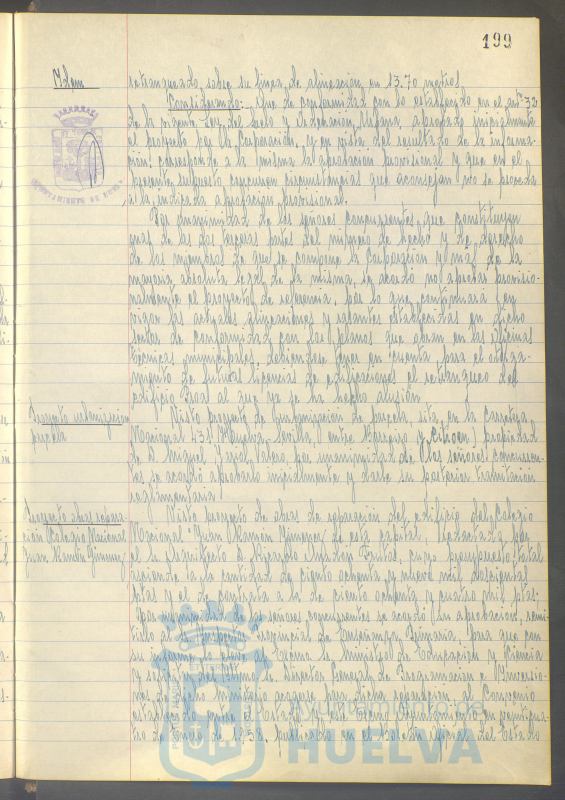 199
Idem
retranqueado, sobre su línea de alineación en 13.70 metros.
Considerando: Que de conformidad con lo establecido en el artº 32
de la vigente Ley del Suelo y Ordenación Urbana, aprobado inicialmente
el proyecto por la Corporación, y en vista del resultado de la informa-
ción corresponde a la misma la aprobación provisional y que en el
presente supuesto concurren circunstancias que aconsejan no se proceda
a la indicada aprobación provisional.
Por unanimidad de los señores concurrentes, que constituyen
más de las dos terceras partes del número de hecho y de derecho
de los miembros de que se compone la Corporación y más de la
mayoría absoluta legal de la misma, se acordó no aprobar provisio-
nalmente el proyecto de referencia, por lo que continuará en
vigor las actuales alineaciones y rasantes establecidas en dicho
sector de conformidad con los planos que obran en las oficinas
técnicas municipales, debiéndose tener en cuenta para el otorga-
miento de futuras licencias de edificaciones el retranqueo del
edificio al que ya se ha hecho alusión.
Proyecto urbanización
parcela
Visto proyecto de urbanización de parcela, sita en la Carretera
Nacional 431 Huelva-Sevilla, entre y Citroen, propiedad
de D. Miguel por unanimidad de los señores concurren-
tes se acordó aprobarlo inicialmente y darle su posterior tramitación
reglamentaria.
Proyecto obras repara-
ción Colegio Nacional
Juan Ramón Jimenez
Visto proyecto de obras de reparación del edificio del Colegio
Nacional "Juan Ramón Jimenez" de esta capital, redactado por
el Sr. Arquitecto D. Ricardo cuyo presupuesto total
asciende a la cantidad de ciento ochenta y nueve mil doscientas
ptas y el de contrata a la de ciento ochenta y cuatro mil ptas.
Por unanimidad de los señores concurrentes se acordó su aprobación, remi-
tirlo a la Inspección de Enseñanza Primaria, para que con
su informe lo eleve al Excmo Sr. Ministro de Educación y Ciencia
y solicitar del Iltmo Sr. Director General de Programación e Inversio-
nes de dicho Ministerio acogerse para dicha reparación al Convenio
establecido entre el Estado y este Excmo Ayuntamiento en veinticua-
tro de Enero de 1.958, publicado en el Boletín Oficial del Estado
Ayuntamiento de
HUELVA